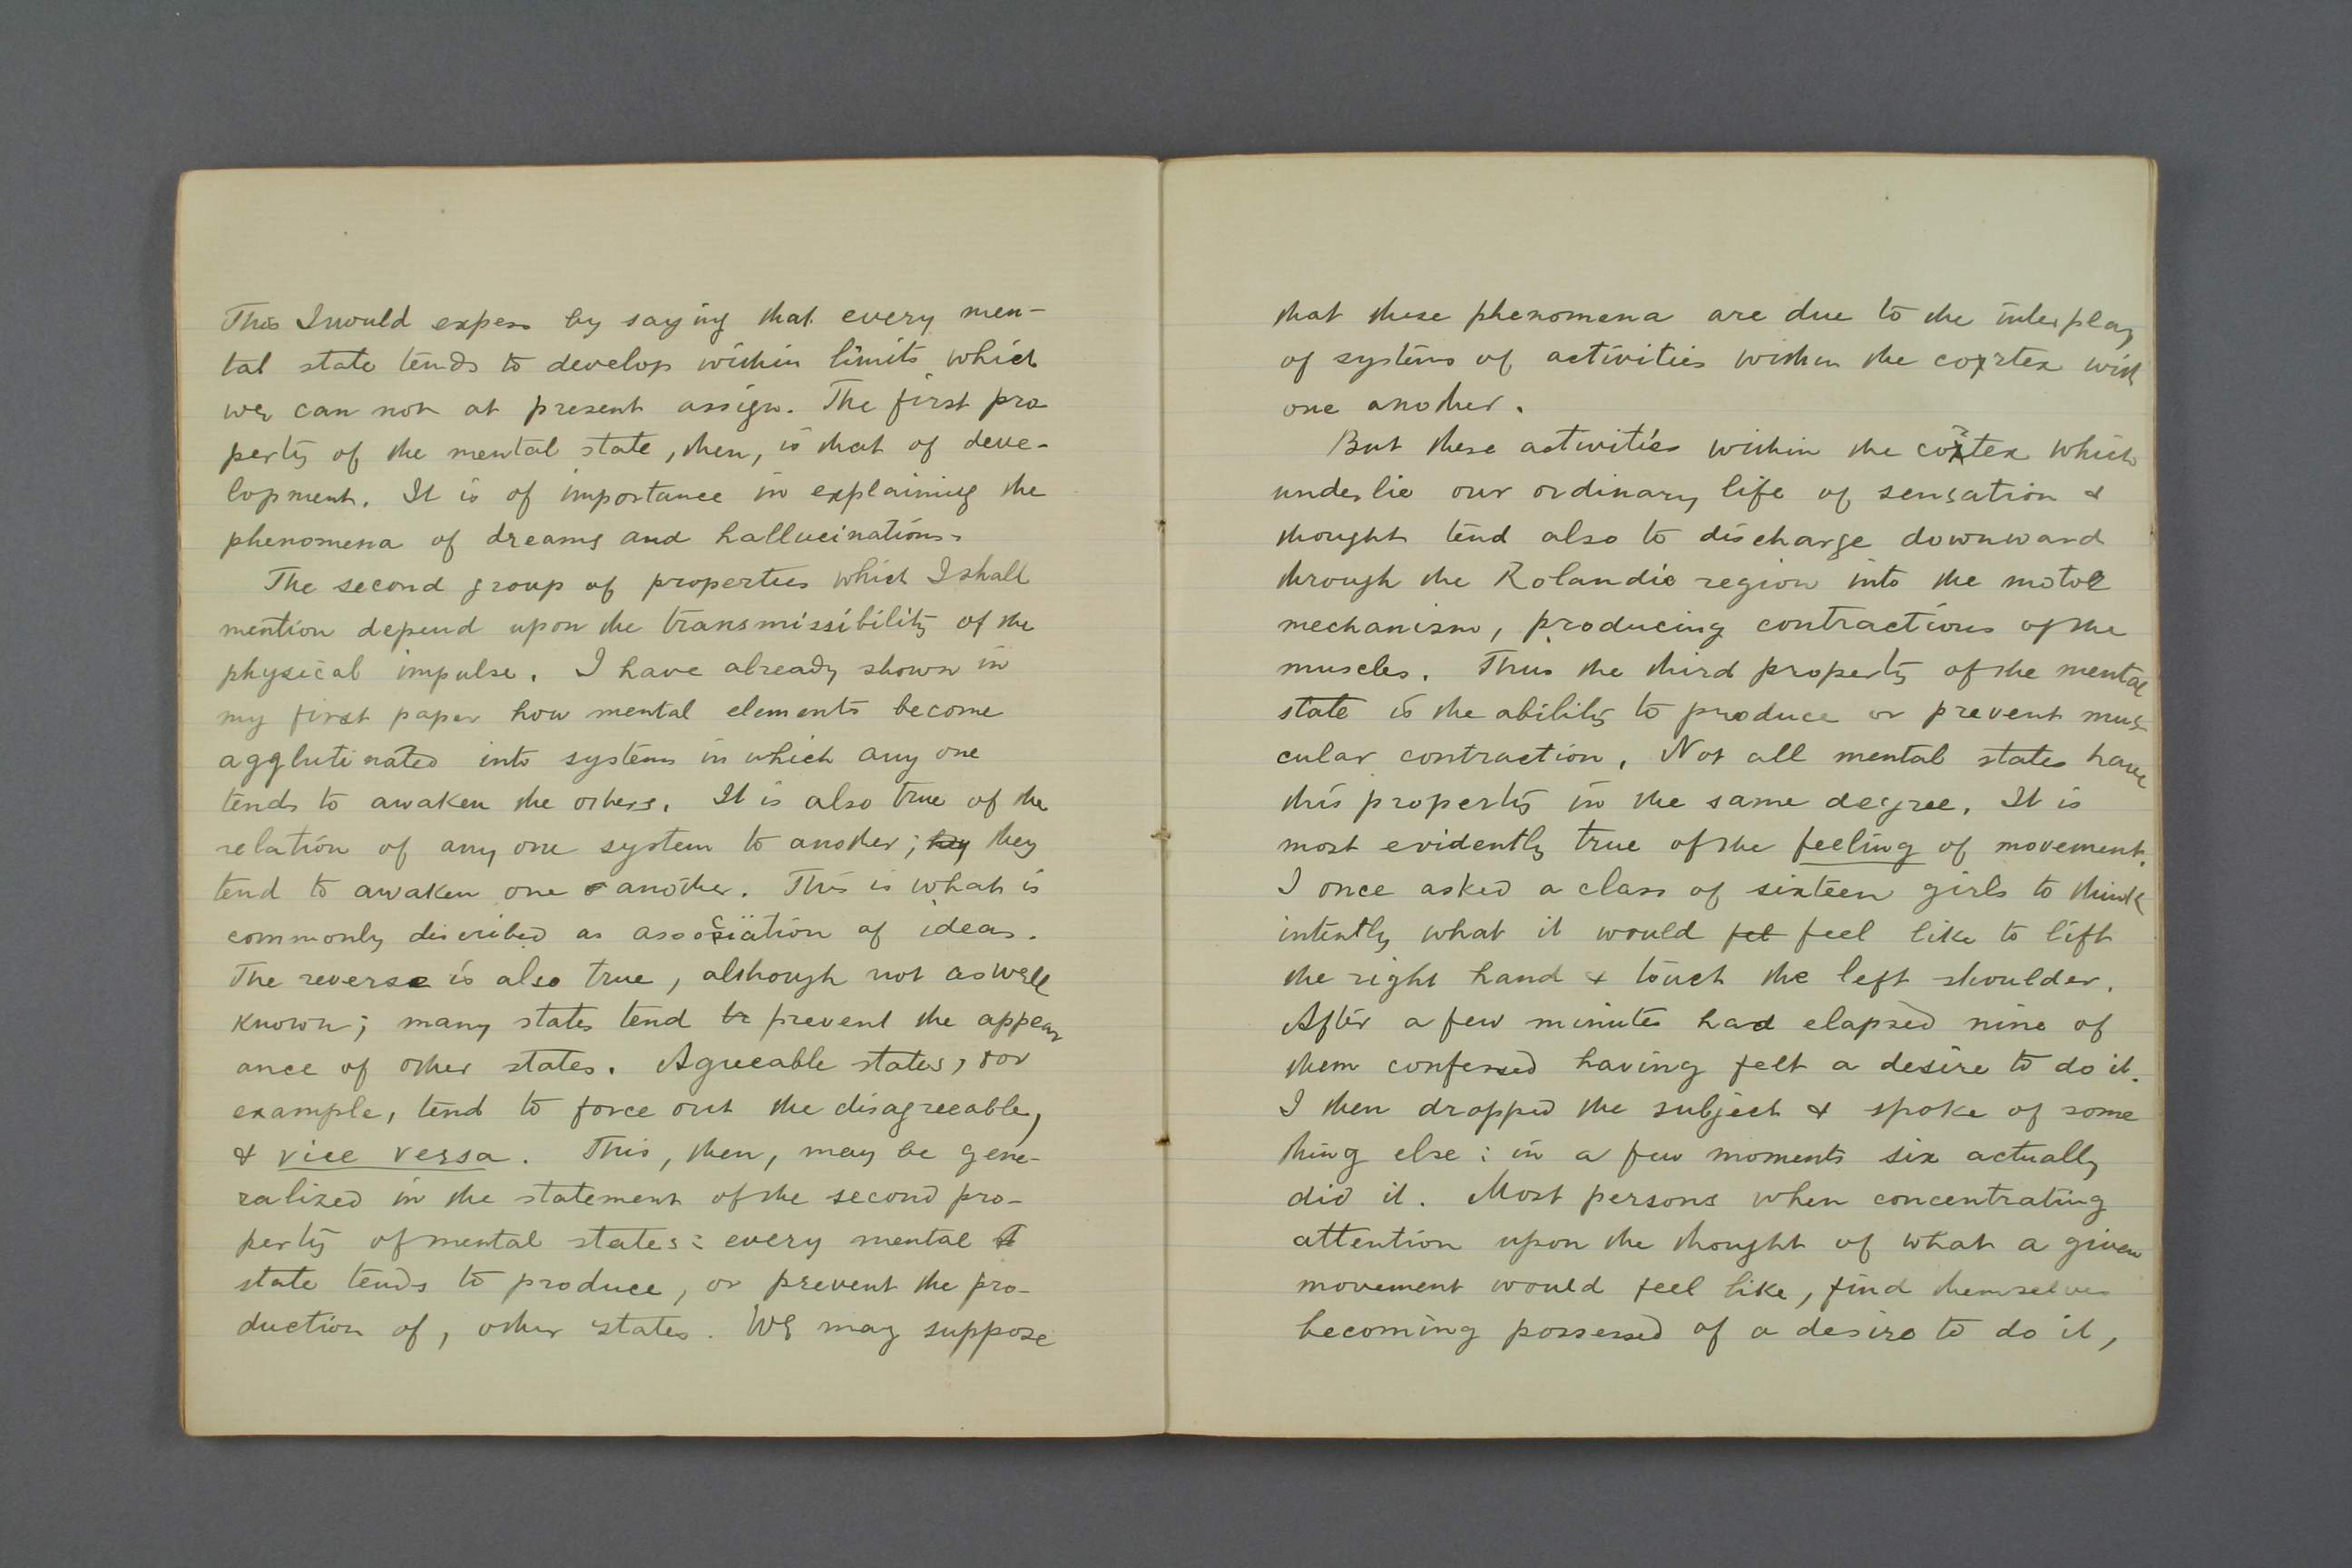 This I would express by saying that every men-
tal state tends to develop within limits which
we can not at present assign. The first pro
perty of the mental state, then, is that of deve-
lopment. It is of importance in explaining the
phenomena of dreams and hallucinations.
The second group of properties which I shall
mention depend upon the transmissibility of the
physical impulse. I have already shown in
my first paper how mental elements become
agglutinated into systems in which any one
tends to awaken the others. It is also true of the
relation of any one system to another; they
tend to awaken one another. This is what is
commonly described as association of ideas.
The reverse is also true, although not as well
known; many states tend to prevent the appear
ance of other states. Agreeable states, for
example, tend to force out the disagreeable,
& vice versa. This, then, may be gene-
ralized in the statement of the second pro-
perty of mental states: every mental
state tends to produce, or prevent the pro-
duction of, other states. We may suppose
that these phenomena are due to the interplay
of systems of activities within the cortex with
one another.
But these activities within the cortex which
underlie our ordinary life of sensation &
thought tend also to discharge downward
through the Rolandic region into the motor
mechanism, producing contractions of the
muscles. Thus the third property of the mental
state is the ability to produce or prevent mus
cular contraction. Not all mental states have
this property in the same degree. It is
most evidently true of the feeling of movement.
I once asked a class of sixteen girls to think
intently what it would fel feel like to lift
the right hand & touch the left shoulder.
After a few minutes had elapsed nine of
them confessed having felt a desire to do it.
I then dropped the subject & spoke of some
thing else: in a few moments six actually
did it. Most persons when concentrating
attention upon the thought of what a given
movement would feel like, find themselves
becoming possessed of a desire to do it,